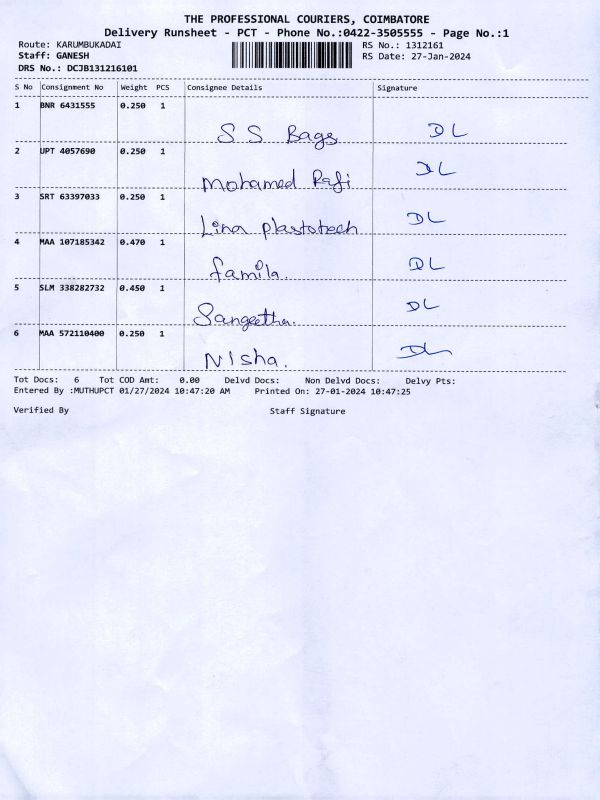 THE PROFESSIONAL COURIERS, COIMBATORE
Delivery Runsheet - PCT - Phone No.:0422-3505555 - Page No.:1
Route: KARUMBUKADAI RS No.: 1312161
Staff: GANESH RS Date: 27-Jan-2024
DRS No.: DCJB131216101
S No Consignment No Weight PCS Consignee Details Signature
1 BNR 6431555 0.250 1
S S Bags DL
2 UPT 4057690 0.250 1
Mohamed Rafi DL
3 SRT 63397033 0.250 1
Lina plastotech DL
4 MAA 107185342 0.470 1
famila. DL
5 SLM 338282732 0.450 1
Sangeetha. DL
6 MAA 572110400 0.250 1
Nisha. DL
Tot Docs: 6 Tot COD Amt: 0.00 Delvd Docs: Non Delvd Docs: Delvy Pts:
Entered By :MUTHUPCT 01/27/2024 10:47:20 AM Printed On: 27-01-2024 10:47:25
Verified By Staff Signature